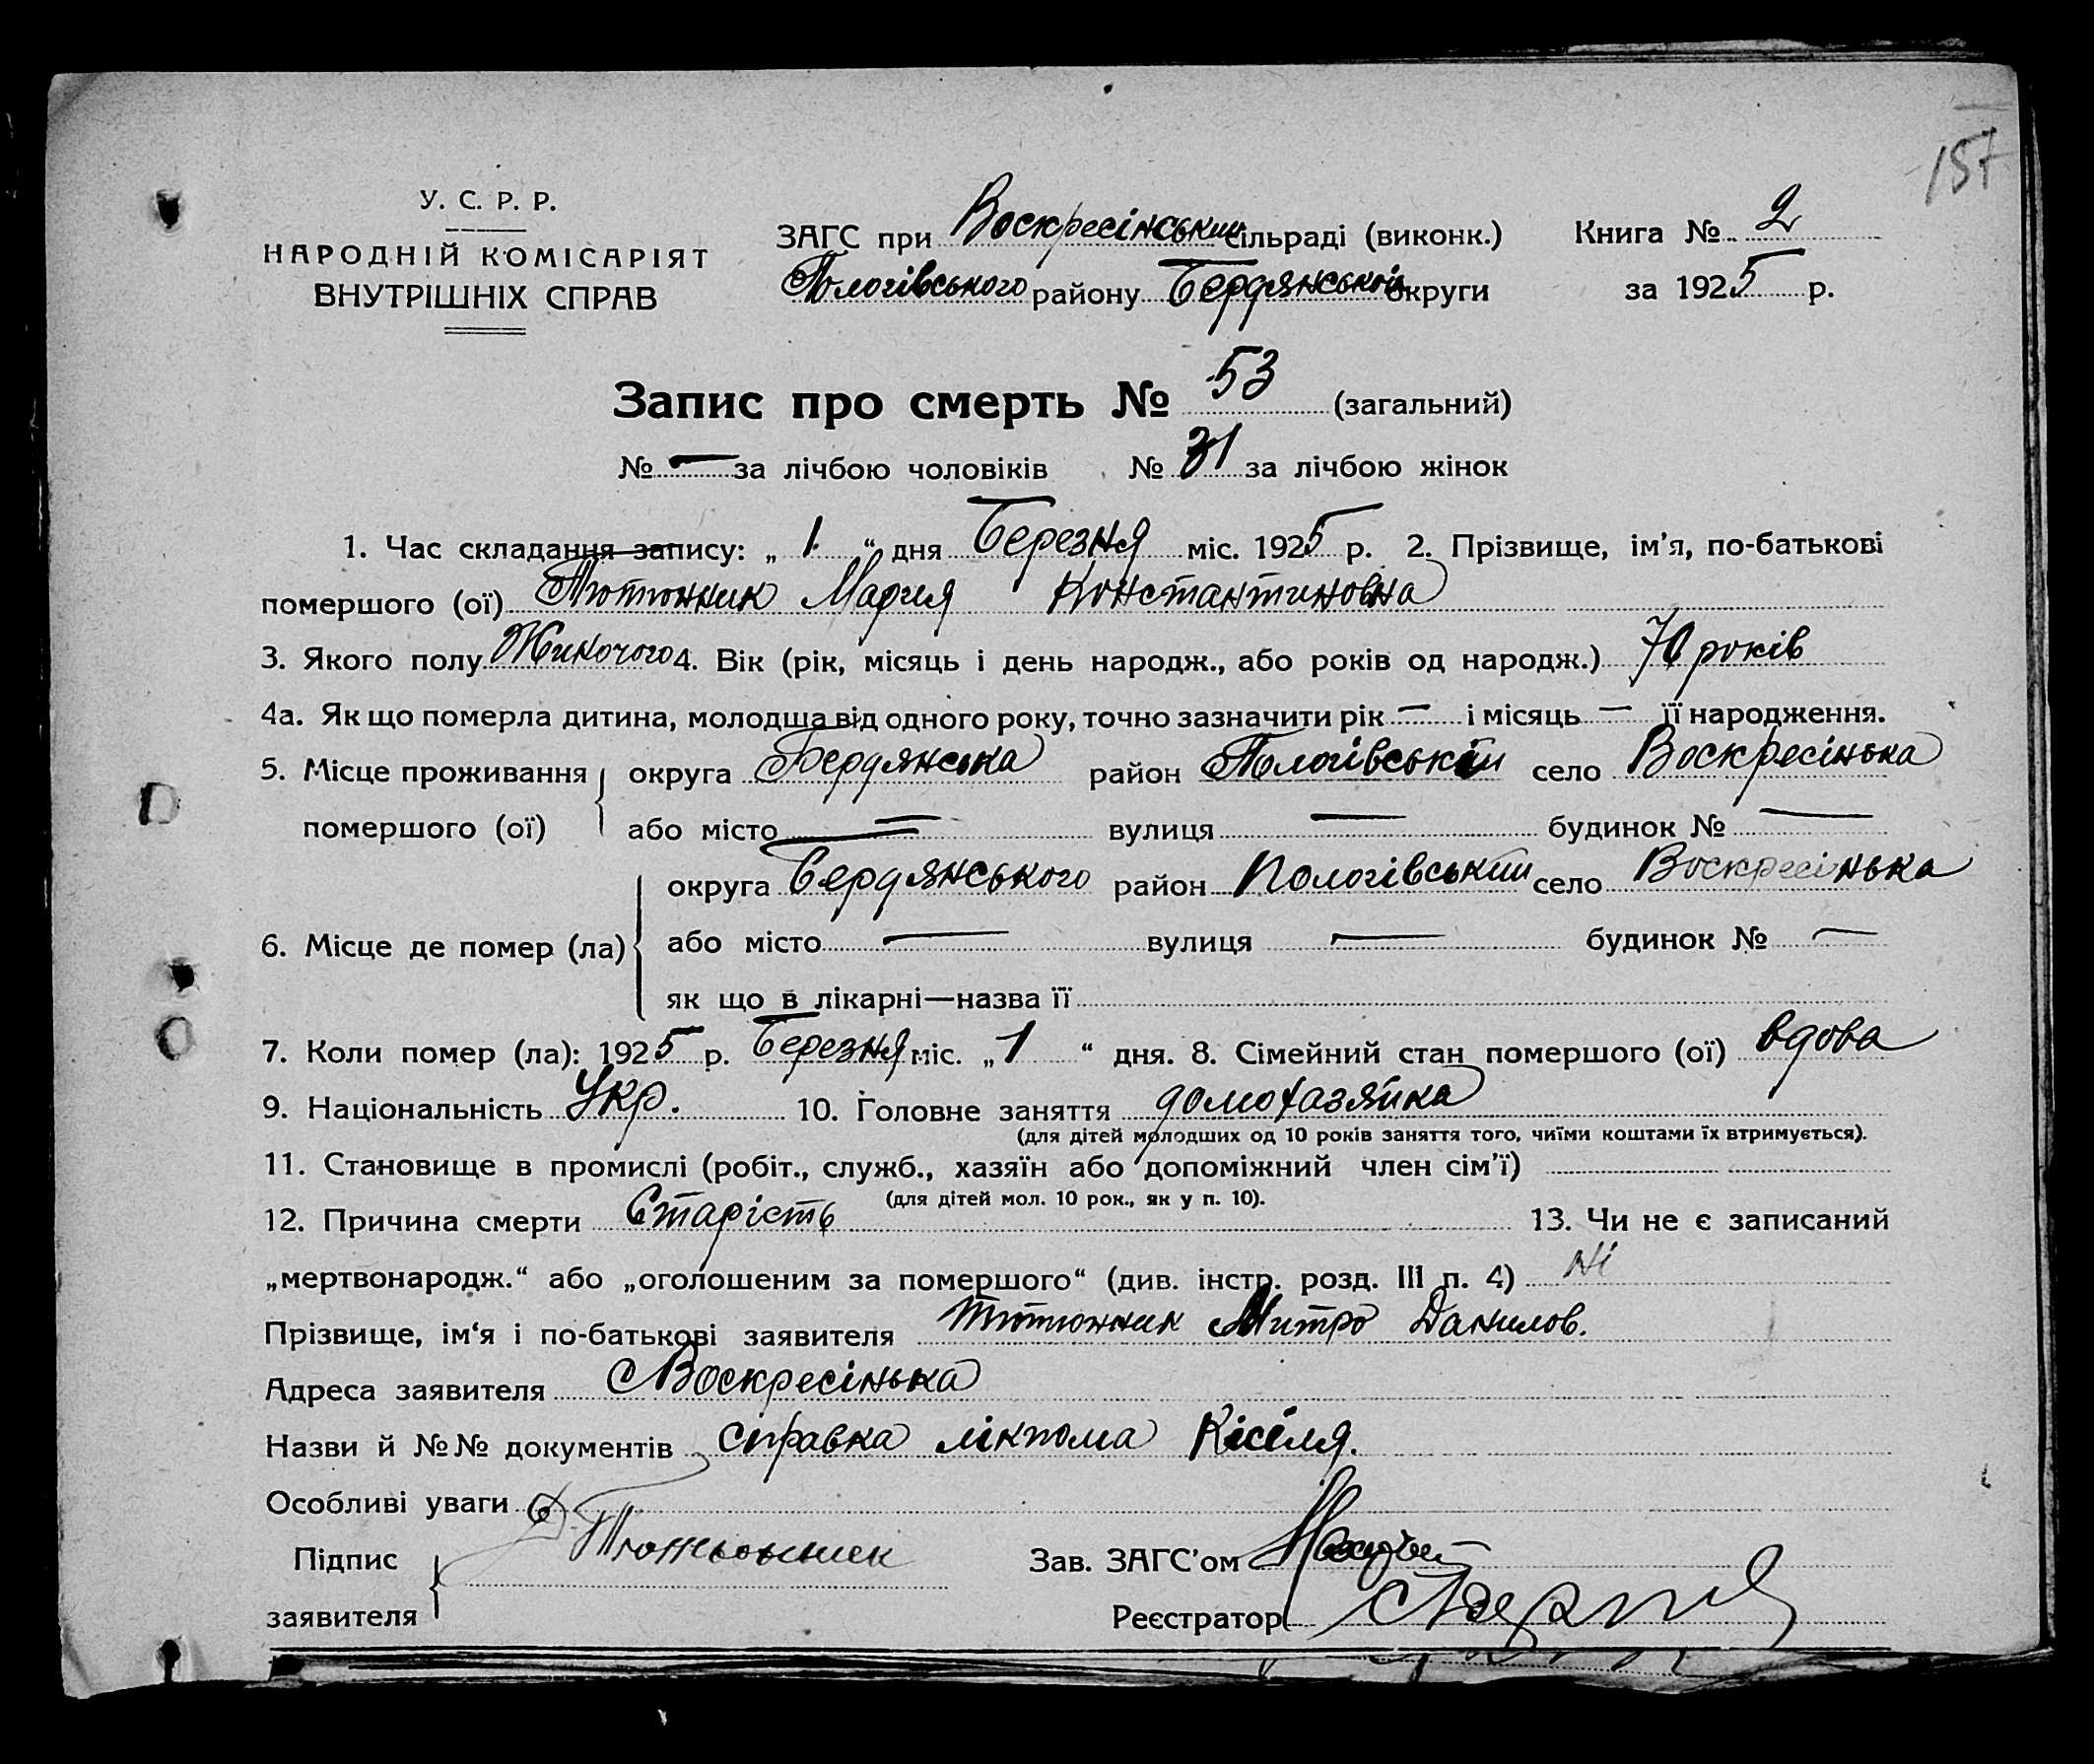 157
У. С. Р. Р.
НАРОДНІЙ КОМІСАРІЯТ
ВНУТРІШНІХ СПРАВ
ЗАГС при Воскресінський сільраді (виконк.) Книга № 2
Пологівського району Бердянської округи за 1925 р.
Запис про смерть № 53 (загальний)
№ — за лічбою чоловіків № 31 за лічбою жінок
1. Час складання запису: „ 1 “ дня Березня міс. 1925 р. 2. Прізвище, ім’я, по-батькові
помершого (ої) Тютюнник Мария Константиновна
3. Якого полу Жиночого 4. Вік (рік, місяць і день народж., або років од народж.) 70 років
4а. Як що померла дитина, молодша від одного року, точно зазначити рік — і місяць — її народження.
5. Місце проживання округа Бердянська район Пологівський село Воскресінька
помершого (ої) або місто — вулиця — будинок № —
округа Бердянського район Пологівський село Воскресінька
6. Місце де помер (ла) або місто — вулиця — будинок № —
як що в лікарні—назва її
7. Коли помер (ла): 1925 р. Березня міс. „ 1 “ дня. 8. Сімейний стан помершого (ої) вдова
9. Національність Укр. 10. Головне заняття домохазяйка
(для дітей молодших од 10 років заняття того, чиїми коштами їх втримується).
11. Становище в промислі (робіт., служб., хазяїн або допоміжний член сім’ї)
(для дітей мол. 10 рок., як у п. 10).
12. Причина смерти Старість 13. Чи не є записаний
„мертвонародж.“ або „оголошеним за помершого“ (див. інстр. розд. III п. 4) Ні
Прізвище, ім‘я і по-батькові заявителя Тютюнник Митро Данилов.
Адреса заявителя с Воскресінька
Назви й №№ документів справка лікпома Кісіля.
Особливі уваги
Підпис Тютюнник Зав. ЗАГС’ом
заявителя Реєстратор